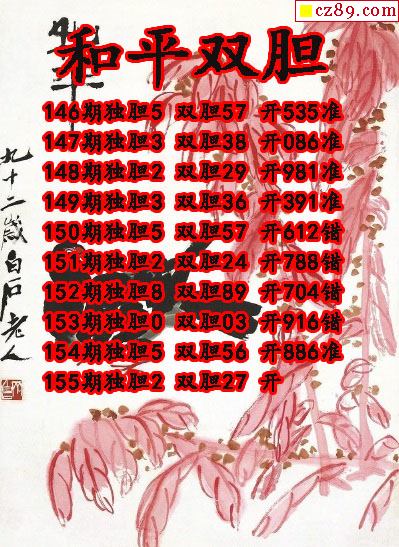 cz89.com
和平双胆
146期独胆5 双胆57 开535准
147期独胆3 双胆38 开086准
148期独胆2 双胆29 开981准
149期独胆3 双胆36 开391准
150期独胆5 双胆57 开612错
151期独胆2 双胆24 开788错
152期独胆8 双胆89 开704错
153期独胆0 双胆03 开916错
154期独胆5 双胆56 开886准
155期独胆2 双胆27 开
九十二岁白石老人